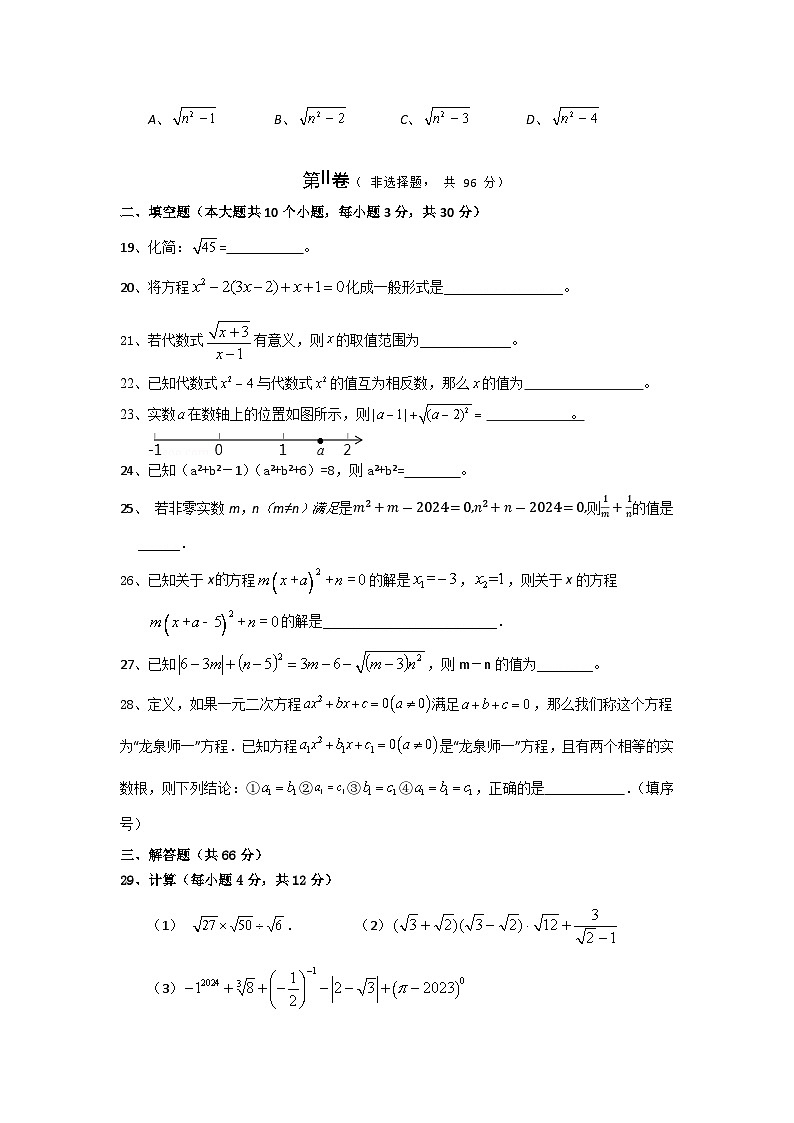 A、√(n²−1)  B、√(n²−2)  C、√(n²−3)  D、√(n²−4)
第II卷( 非选择题， 共 96 分)
二、填空题（本大题共 10 个小题，每小题 3 分，共 30 分）
19、化简：√45 =___________。
20、将方程 x²−2(3x−2)+x+1=0 化成一般形式是_________________。
21、若代数式 √(x+3)/(x−1) 有意义，则 x 的取值范围为_____________。
22、已知代数式 x²−4 与代数式 x² 的值互为相反数，那么 x 的值为_________________。
23、实数 a 在数轴上的位置如图所示，则 |a−1|+√((a−2)²) = ____________。
-1 0 1 a 2
24、已知（a²+b²－1）（a²+b²+6）=8，则 a²+b²=________。
25、 若非零实数 m，n（m≠n）满足是 m²+m−2024=0,n²+n−2024=0,则 1/m+1/n 的值是
______．
26、已知关于 x的方程 m(x+a)²+n=0 的解是 x₁=−3，x₂=1，则关于 x 的方程
m(x+a- 5)²+n=0 的解是_________________________．
27、已知 |6−3m|+(n−5)²=3m−6−√((m−3)n²)，则 m－n 的值为________。
28、定义，如果一元二次方程 ax²+bx+c=0(a≠0)满足 a+b+c=0，那么我们称这个方程
为“龙泉师一”方程．已知方程 a₁x²+b₁x+c₁=0(a≠0)是“龙泉师一”方程，且有两个相等的实
数根，则下列结论：①a₁=b₁②a₁=c₁③b₁=c₁④a₁=b₁=c₁，正确的是____________．（填序
号）
三、解答题（共 66 分）
29、计算（每小题 4 分，共 12 分）
（1） √27×√50÷√6． （2）(√3+√2)(√3−√2)·√12+3/(√2−1)
（3）−1²⁰²⁴+∛8+(−1/2)⁻¹−|2−√3|+(π−2023)⁰